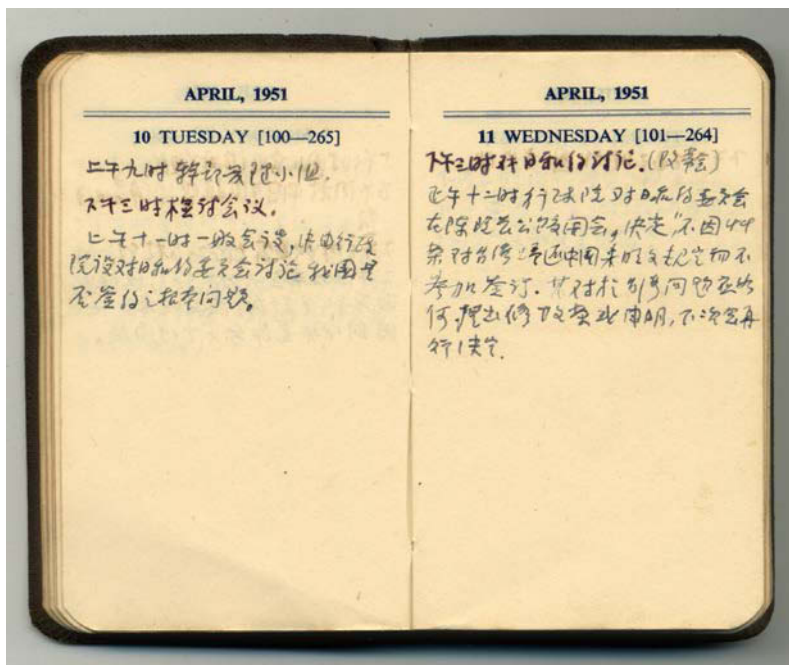 APRIL, 1951
10 TUESDAY [100—265]
上午九时干部管理小组.
下午三时检讨会议.
上午十一时一般会议,决由行政
院设对日和约委员会讨论我国是
否签约之根本问题。
APRIL, 1951
11 WEDNESDAY [101—264]
下午三时对日和约讨论.
正午十二时行政院对日和约委员会
在陈院长公馆开会。决定"不因
条对台湾归还中国未明文规定而不
参加签订.
何提出修改文案或申明,下次会再
行决定.